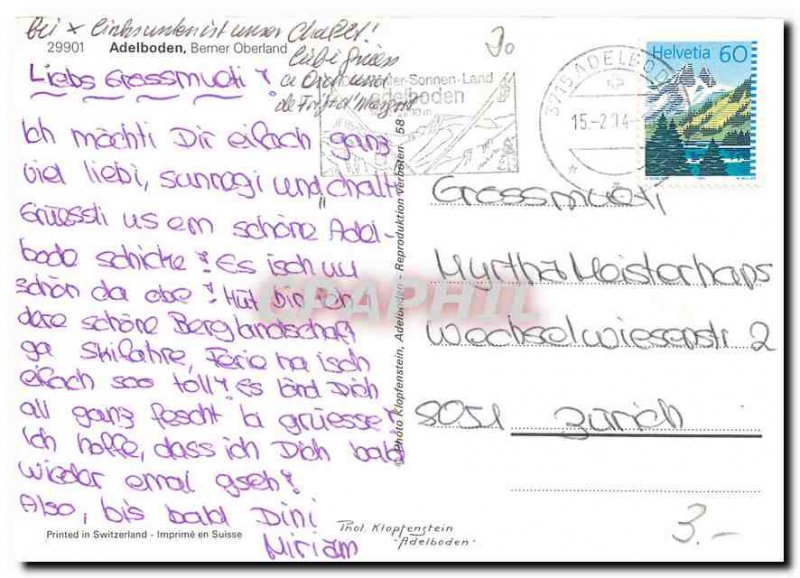 Bei x links unten ist unser Chalet!
29901 Adelboden, Berner Oberland
Liebi Grüess
30
Liebs Grossmueti!
Ich möchti Dir eifach ganz
viel liebi, sunnogi und chalti
Grüessli us em schöne Adel-
bode schicke! Es isch uu
schön da obe! Hüt bin ich
dere schöne Berglandschaft
ga Skifahre, Ferie ha isch
eifach soo toll! Es lönd Dich
all ganz fescht la grüesse!
Ich hoffe, dass ich Dich bald
wieder emal gseh!
Also, bis bald Dini
Miriam
Printed in Switzerland - Imprimé en Suisse
© Photo Klopfenstein, Adelboden - Reproduktion verboten 58
Phot. Klopfenstein
-Adelboden-
-Sonnen-Land
Adelboden
3715 ADELBOD
15.-2.94-
Helvetia 60
Grossmueti
Myrtha Meisterhaps
Wechselwiesenstr 2
8051 Zürich
3.-
CPAPHIL